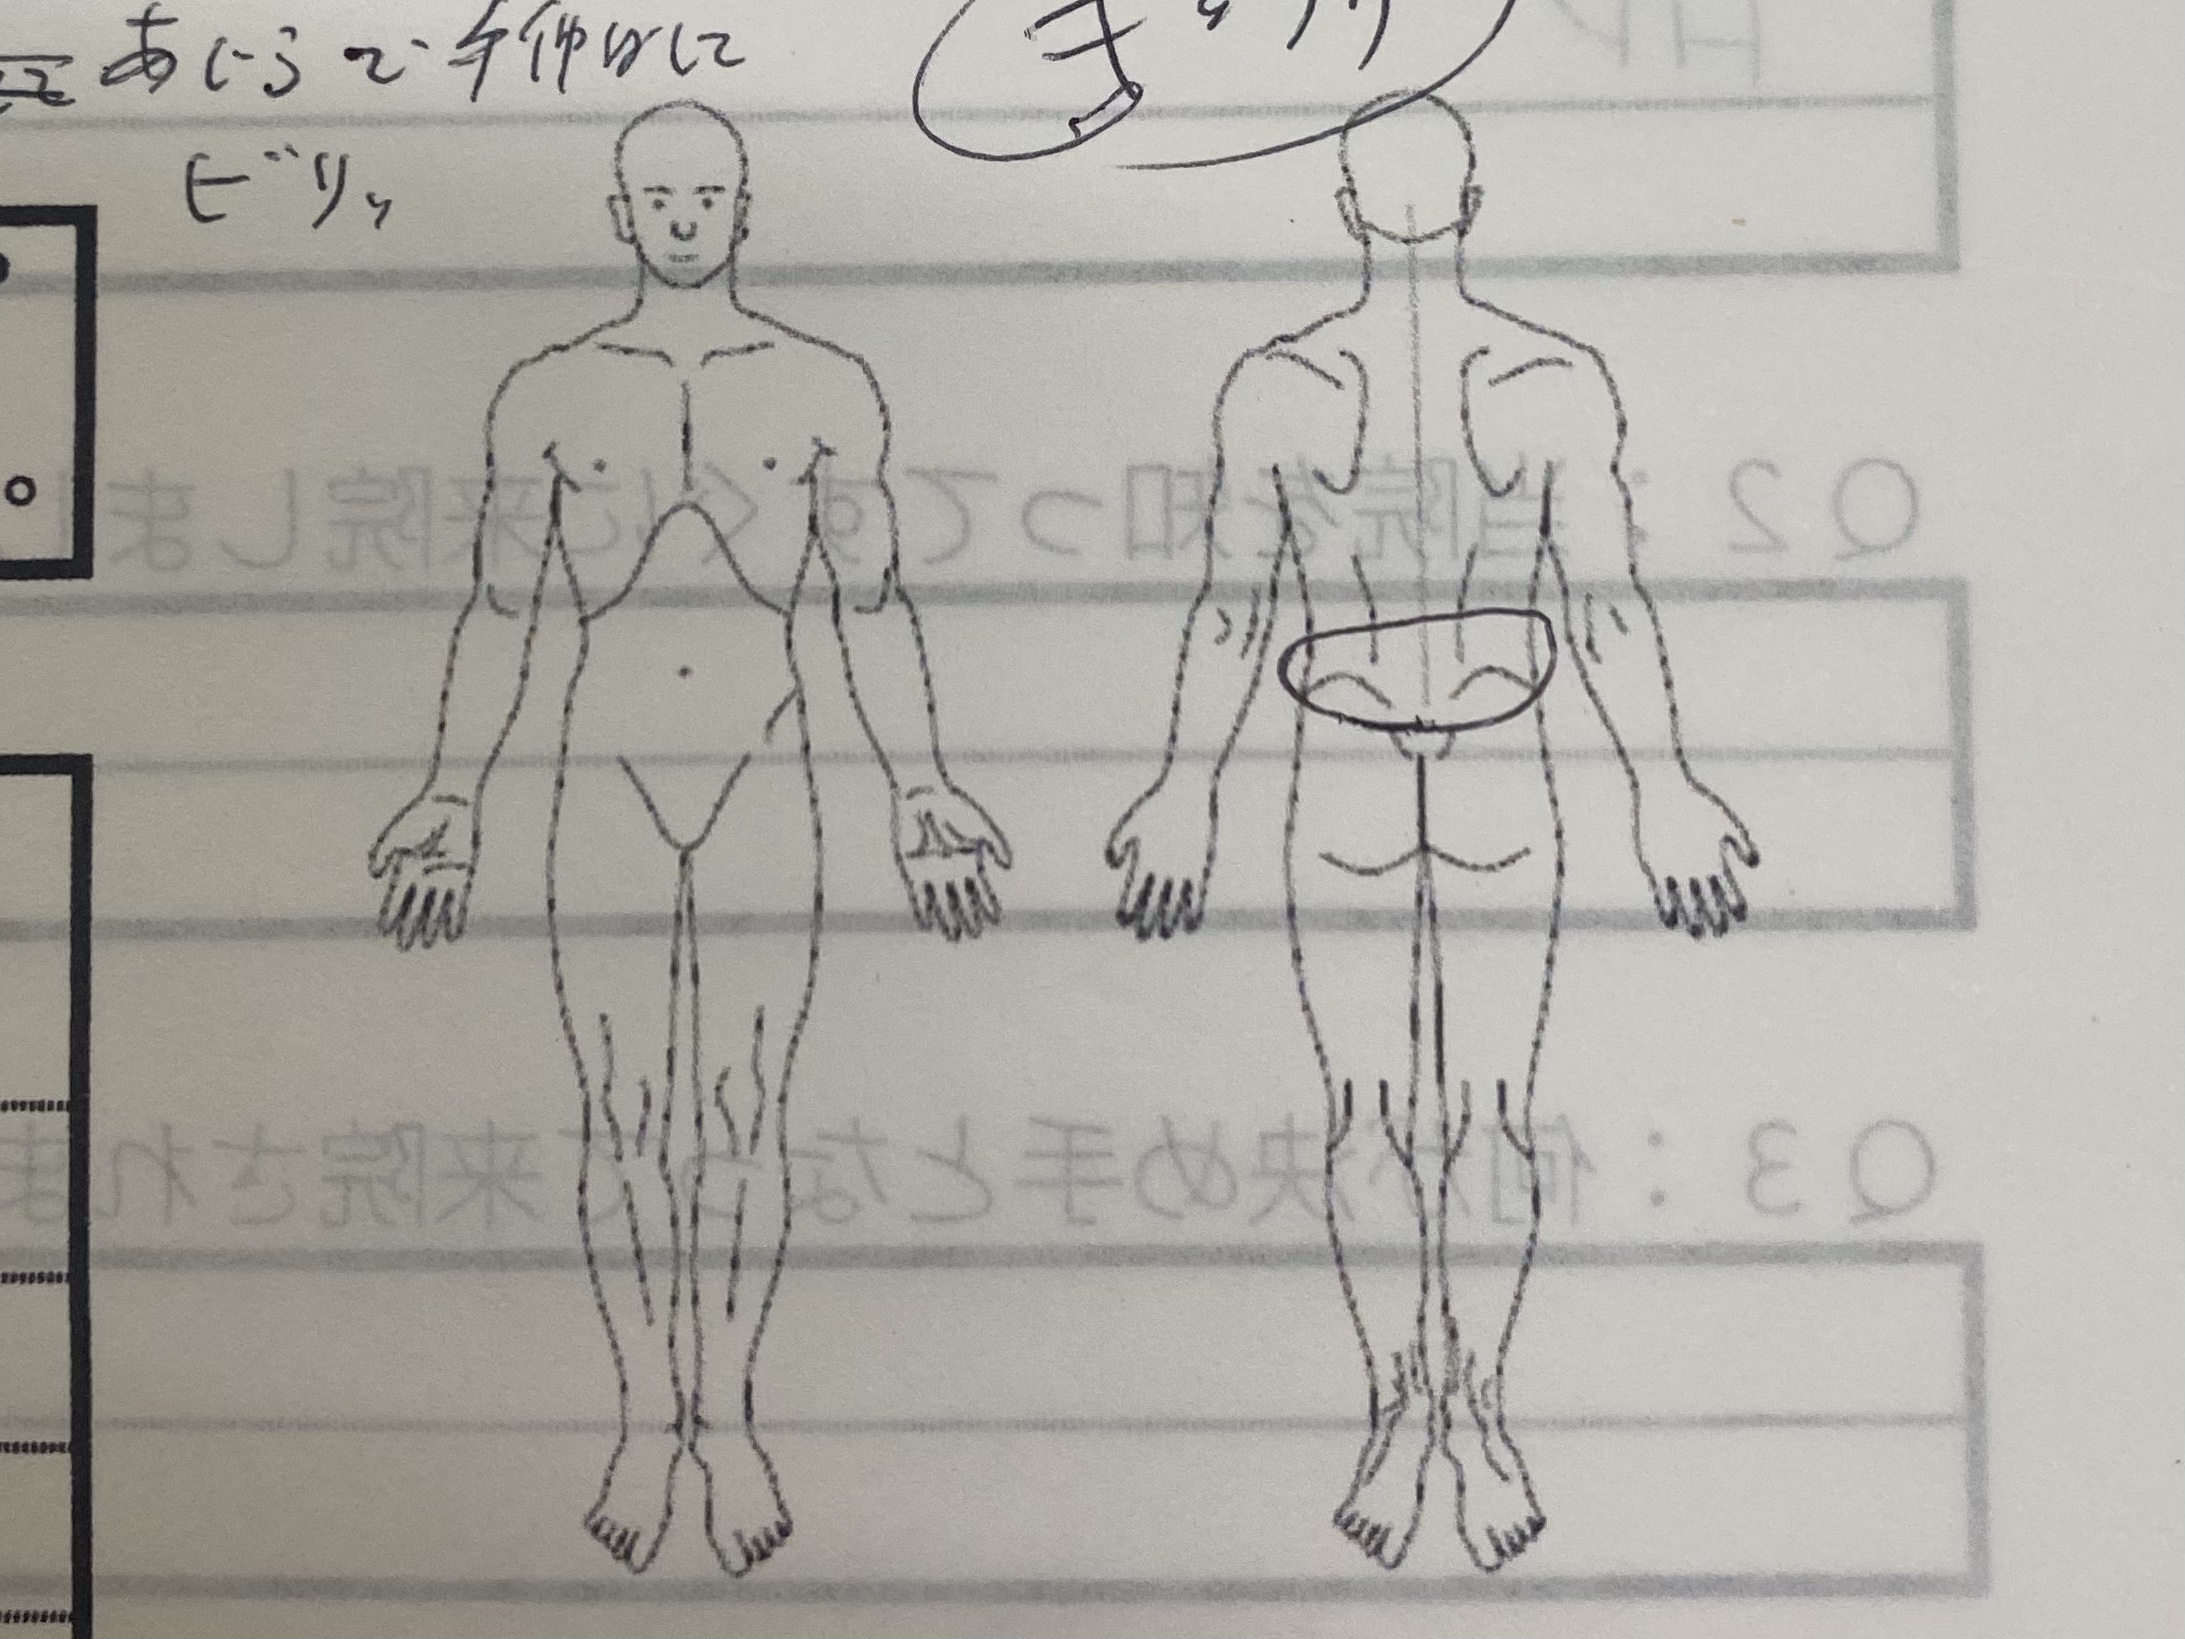 あぐらで手伸ばに
ビリッ
Q2：当院を知ってすぐに来院しまし
Q3：何が決め手となって来院されま